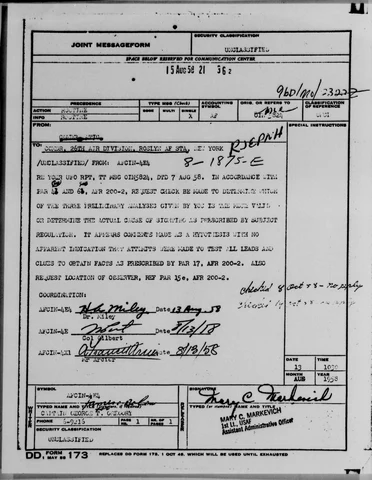 JOINT MESSAGEFORM
SECURITY CLASSIFICATION
UNCLASSIFIED
SPACE BELOW RESERVED FOR COMMUNICATION CENTER
15 AUG 58 21
PRECEDENCE
TYPE MSG (Check)
ACCOUNTING SYMBOL
ORIG. OR REFERS TO
CLASSIFICATION OF REFERENCE
ACTION ROUTINE
BOOK MULTI SINGLE
INFO ROUTINE
X AF
FROM:
SPECIAL INSTRUCTIONS
TO: COMDR, 26TH AIR DIVISION, ROSLYN AF STA, NEW YORK
RJEPNH
/UNCLASSIFIED/ FROM: AFCIN-4E4
8-1875-E
RE YOUR UFO RPT, TT MSG CIN5824, DTD 7 AUG 58. IN ACCORDANCE WITH
PAR AFR 200-2, REQUEST CHECK BE MADE TO DETERMINE WHICH
OF THE THREE PRELIMINARY ANALYSES GIVEN BY YOU IS THE MOST VALID
OR DETERMINE THE ACTUAL CAUSE OF SIGHTING AS PRESCRIBED BY SUBJECT
REGULATION. IT APPEARS COMMENTS MADE AS A HYPOTHESIS WITH NO
APPARENT INDICATION THAT ATTEMPTS WERE MADE TO TEST ALL LEADS AND
CLUES TO OBTAIN FACTS AS PRESCRIBED BY PAR 17, AFR 200-2. ALSO
REQUEST LOCATION OF OBSERVER, REF PAR 15e, AFR 200-2.
checked 8 Oct 58 - no reply
COORDINATION:
AFCIN-4E4 Date 13 Aug. 58
Dr. Miley
AFCIN-4E Date 8/13/58
Col Gilbert
AFCIN-4X1 Date 8/13/58
Mr Arcier
DATE TIME
13
MONTH YEAR
AUG 1958
SYMBOL
AFCIN-4E4
SIGNATURE
Mary C. Markevich
TYPED NAME AND TITLE
CAPTAIN GEORGE T. GREGORY
TYPED (or stamped) NAME AND TITLE
MARY C. MARKEVICH
1st Lt., USAF
Assistant Administrative Officer
PHONE 6-9216
PAGE NR. 1
NR. OF PAGES 1
SECURITY CLASSIFICATION
UNCLASSIFIED
DD FORM 173
REPLACES DD FORM 173, 1 OCT 49, WHICH WILL BE USED UNTIL EXHAUSTED